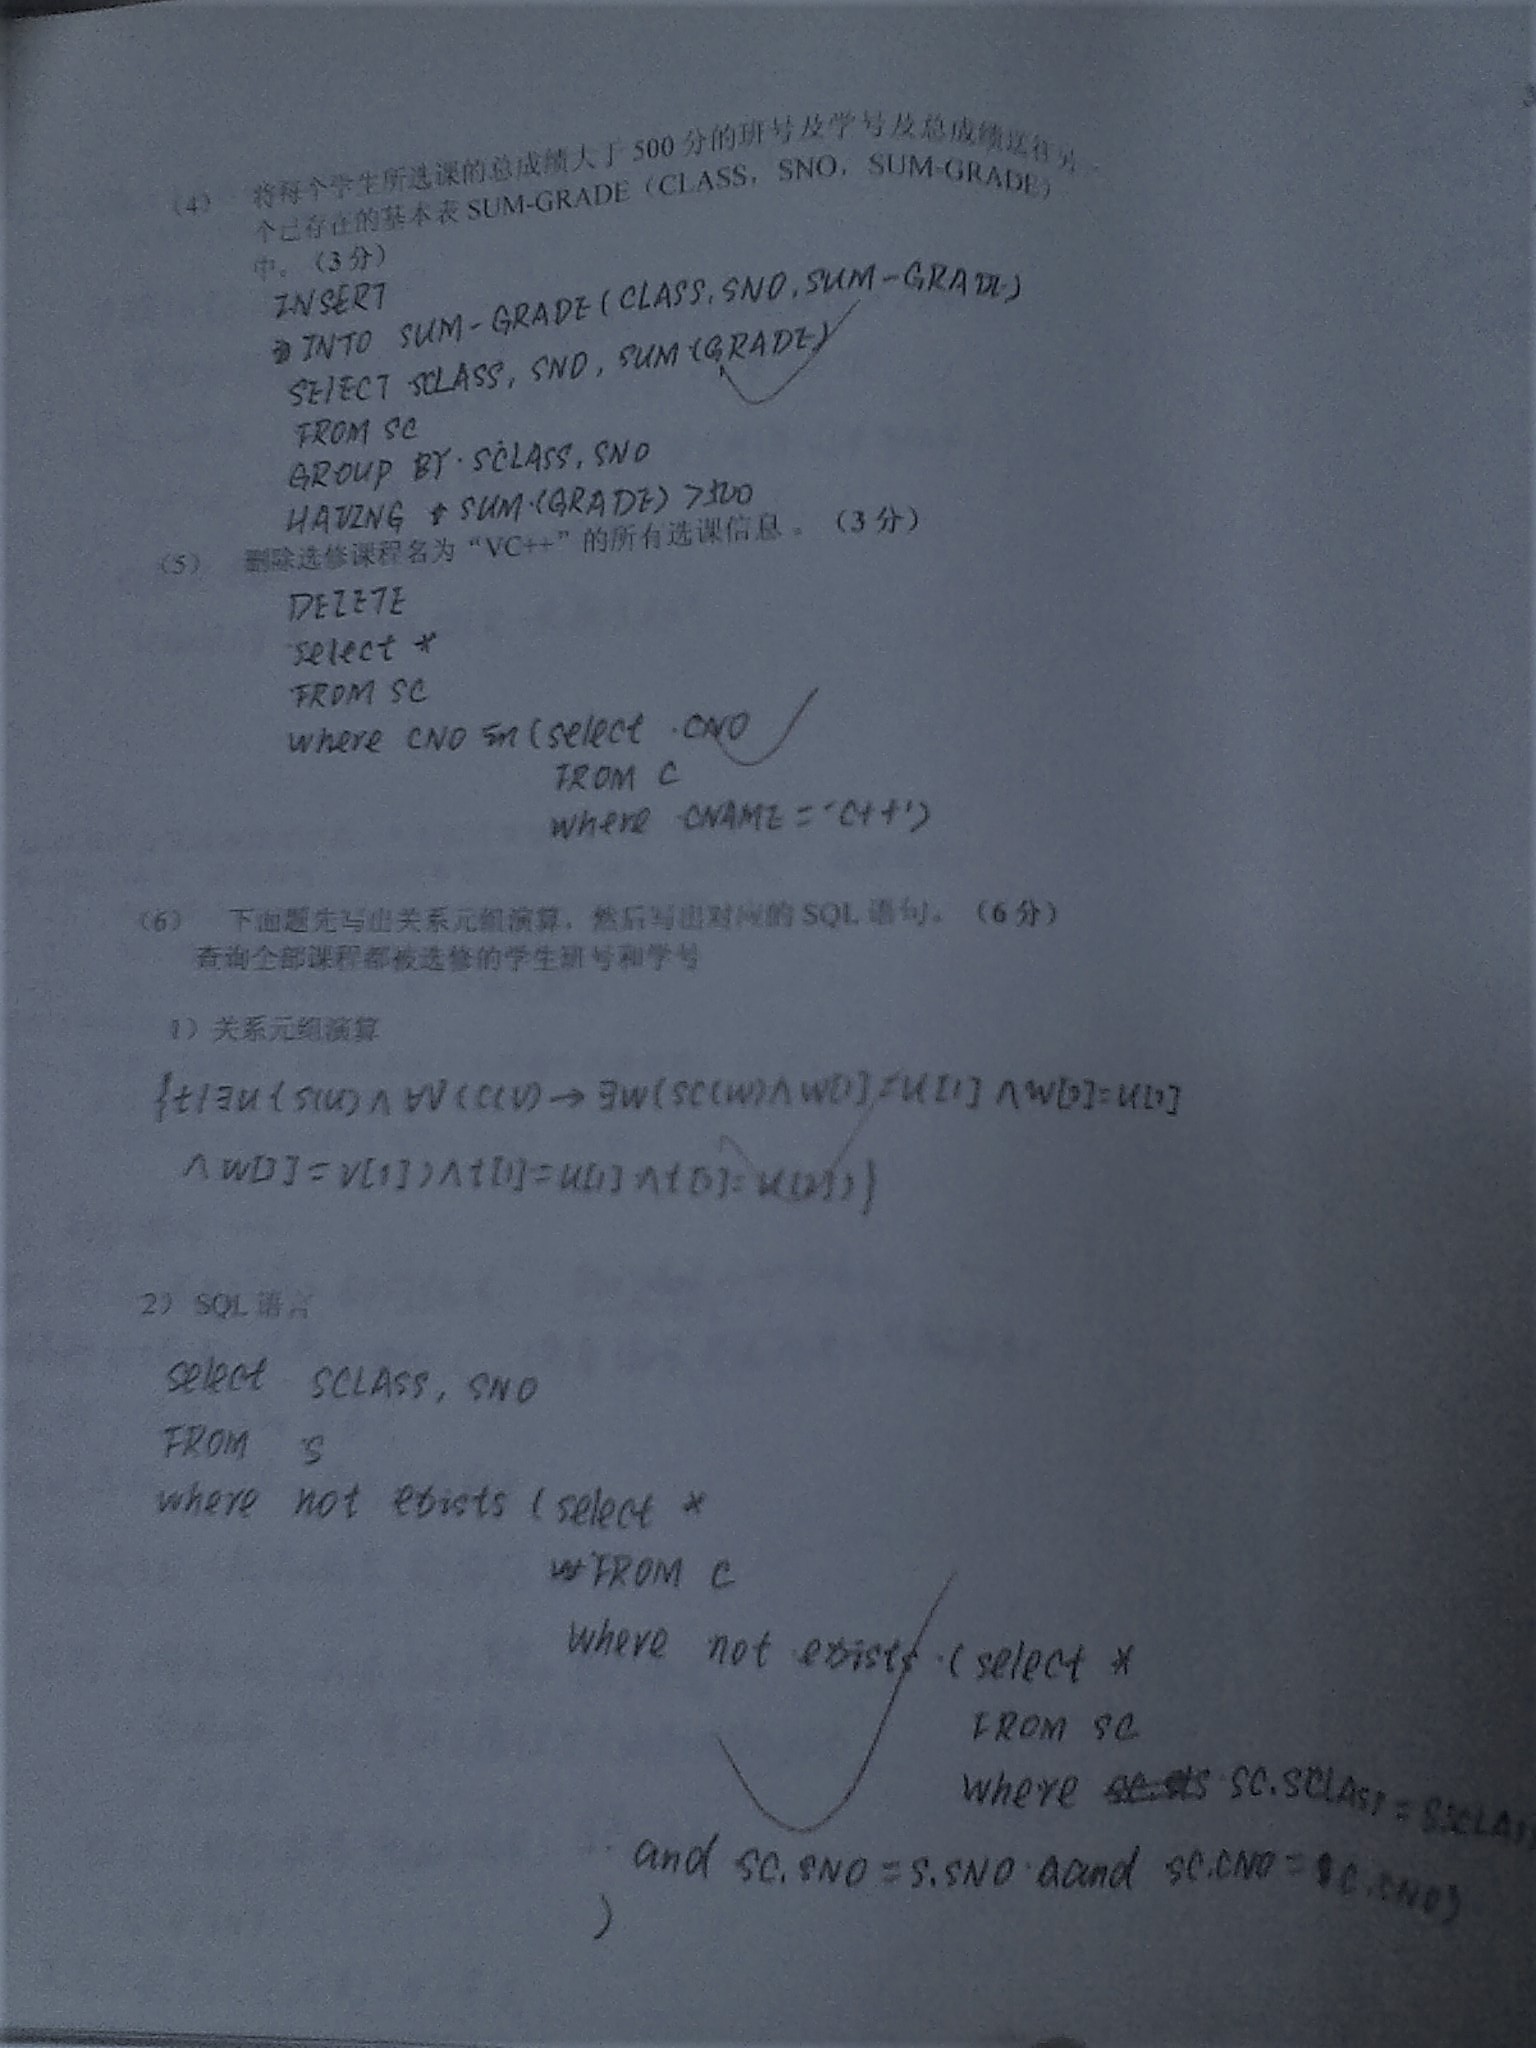 (4) 将每个学生所选课的总成绩大于500分的班号及学号及总成绩送往另一
个已存在的基本表SUM-GRADE（CLASS，SNO，SUM-GRADE）
中。（3分）
INSERT
INTO SUM-GRADE(CLASS,SNO,SUM-GRADE)
SELECT SCLASS, SNO, SUM(GRADE)
FROM SC
GROUP BY SCLASS, SNO
HAVING SUM(GRADE) >500
(5) 删除选修课程名为“VC++”的所有选课信息。（3分）
DELETE
select *
FROM SC
where CNO In (select CNO
FROM C
where CNAME = 'C++')
(6) 下面题先写出关系元组演算，然后写出对应的SQL语句。（6分）
查询全部课程都被选修的学生班号和学号
1）关系元组演算
{t|∃u(S(u)∧∀V(C(V)→∃W(SC(W)∧W[1]=U[1]∧W[2]=U[2]
∧W[3]=V[1])∧t[1]=U[1]∧t[2]=U[2])}
2）SQL语言
select SCLASS, SNO
FROM S
where not exists (select *
FROM C
where not exists (select *
FROM SC
where SC.SCLASS = S.SCLASS
and SC.SNO = S.SNO and SC.CNO = C.CNO)
)